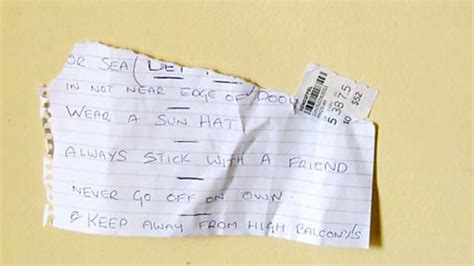 OR SEA (
IN NOT NEAR EDGE OF
WEAR A SUN HAT
ALWAYS STICK WITH A FRIEND
NEVER GO OFF ON OWN.
& KEEP AWAY FROM HIGH BALCONYS